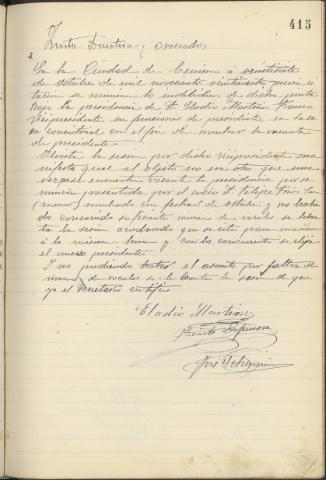 415
Junta Directiva y asociados
En la Ciudad de a veintisiete
de Octubre de mil novecientos veintinueve
de reunión la de dicha junta
bajo la presidencia de D. Eladio Martínez
Vicepresidente en funciones de presidente en la sala
consistorial con el fin de nombrar la vacante
de presidente.
Abierta la sesión por dicho vicepresidente ma
nifestó que el objeto no era otro que una
vez que encontrar vacante la presidencia por re
nuncia presentada por el socio D. Felipe
(menor) nombrado con fecha de Octubre y no habien
do concurrido suficiente número de vocales se levan
ta la sesión acordando que se cite para mañana
á la misma hora y con los concurrentes se elija
el nuevo presidente.
Y no pudiendo tratar el asunto por falta de
número de vocales se levanta la sesión de que
yo el secretario certifico
Eladio Martínez
Espinosa
José